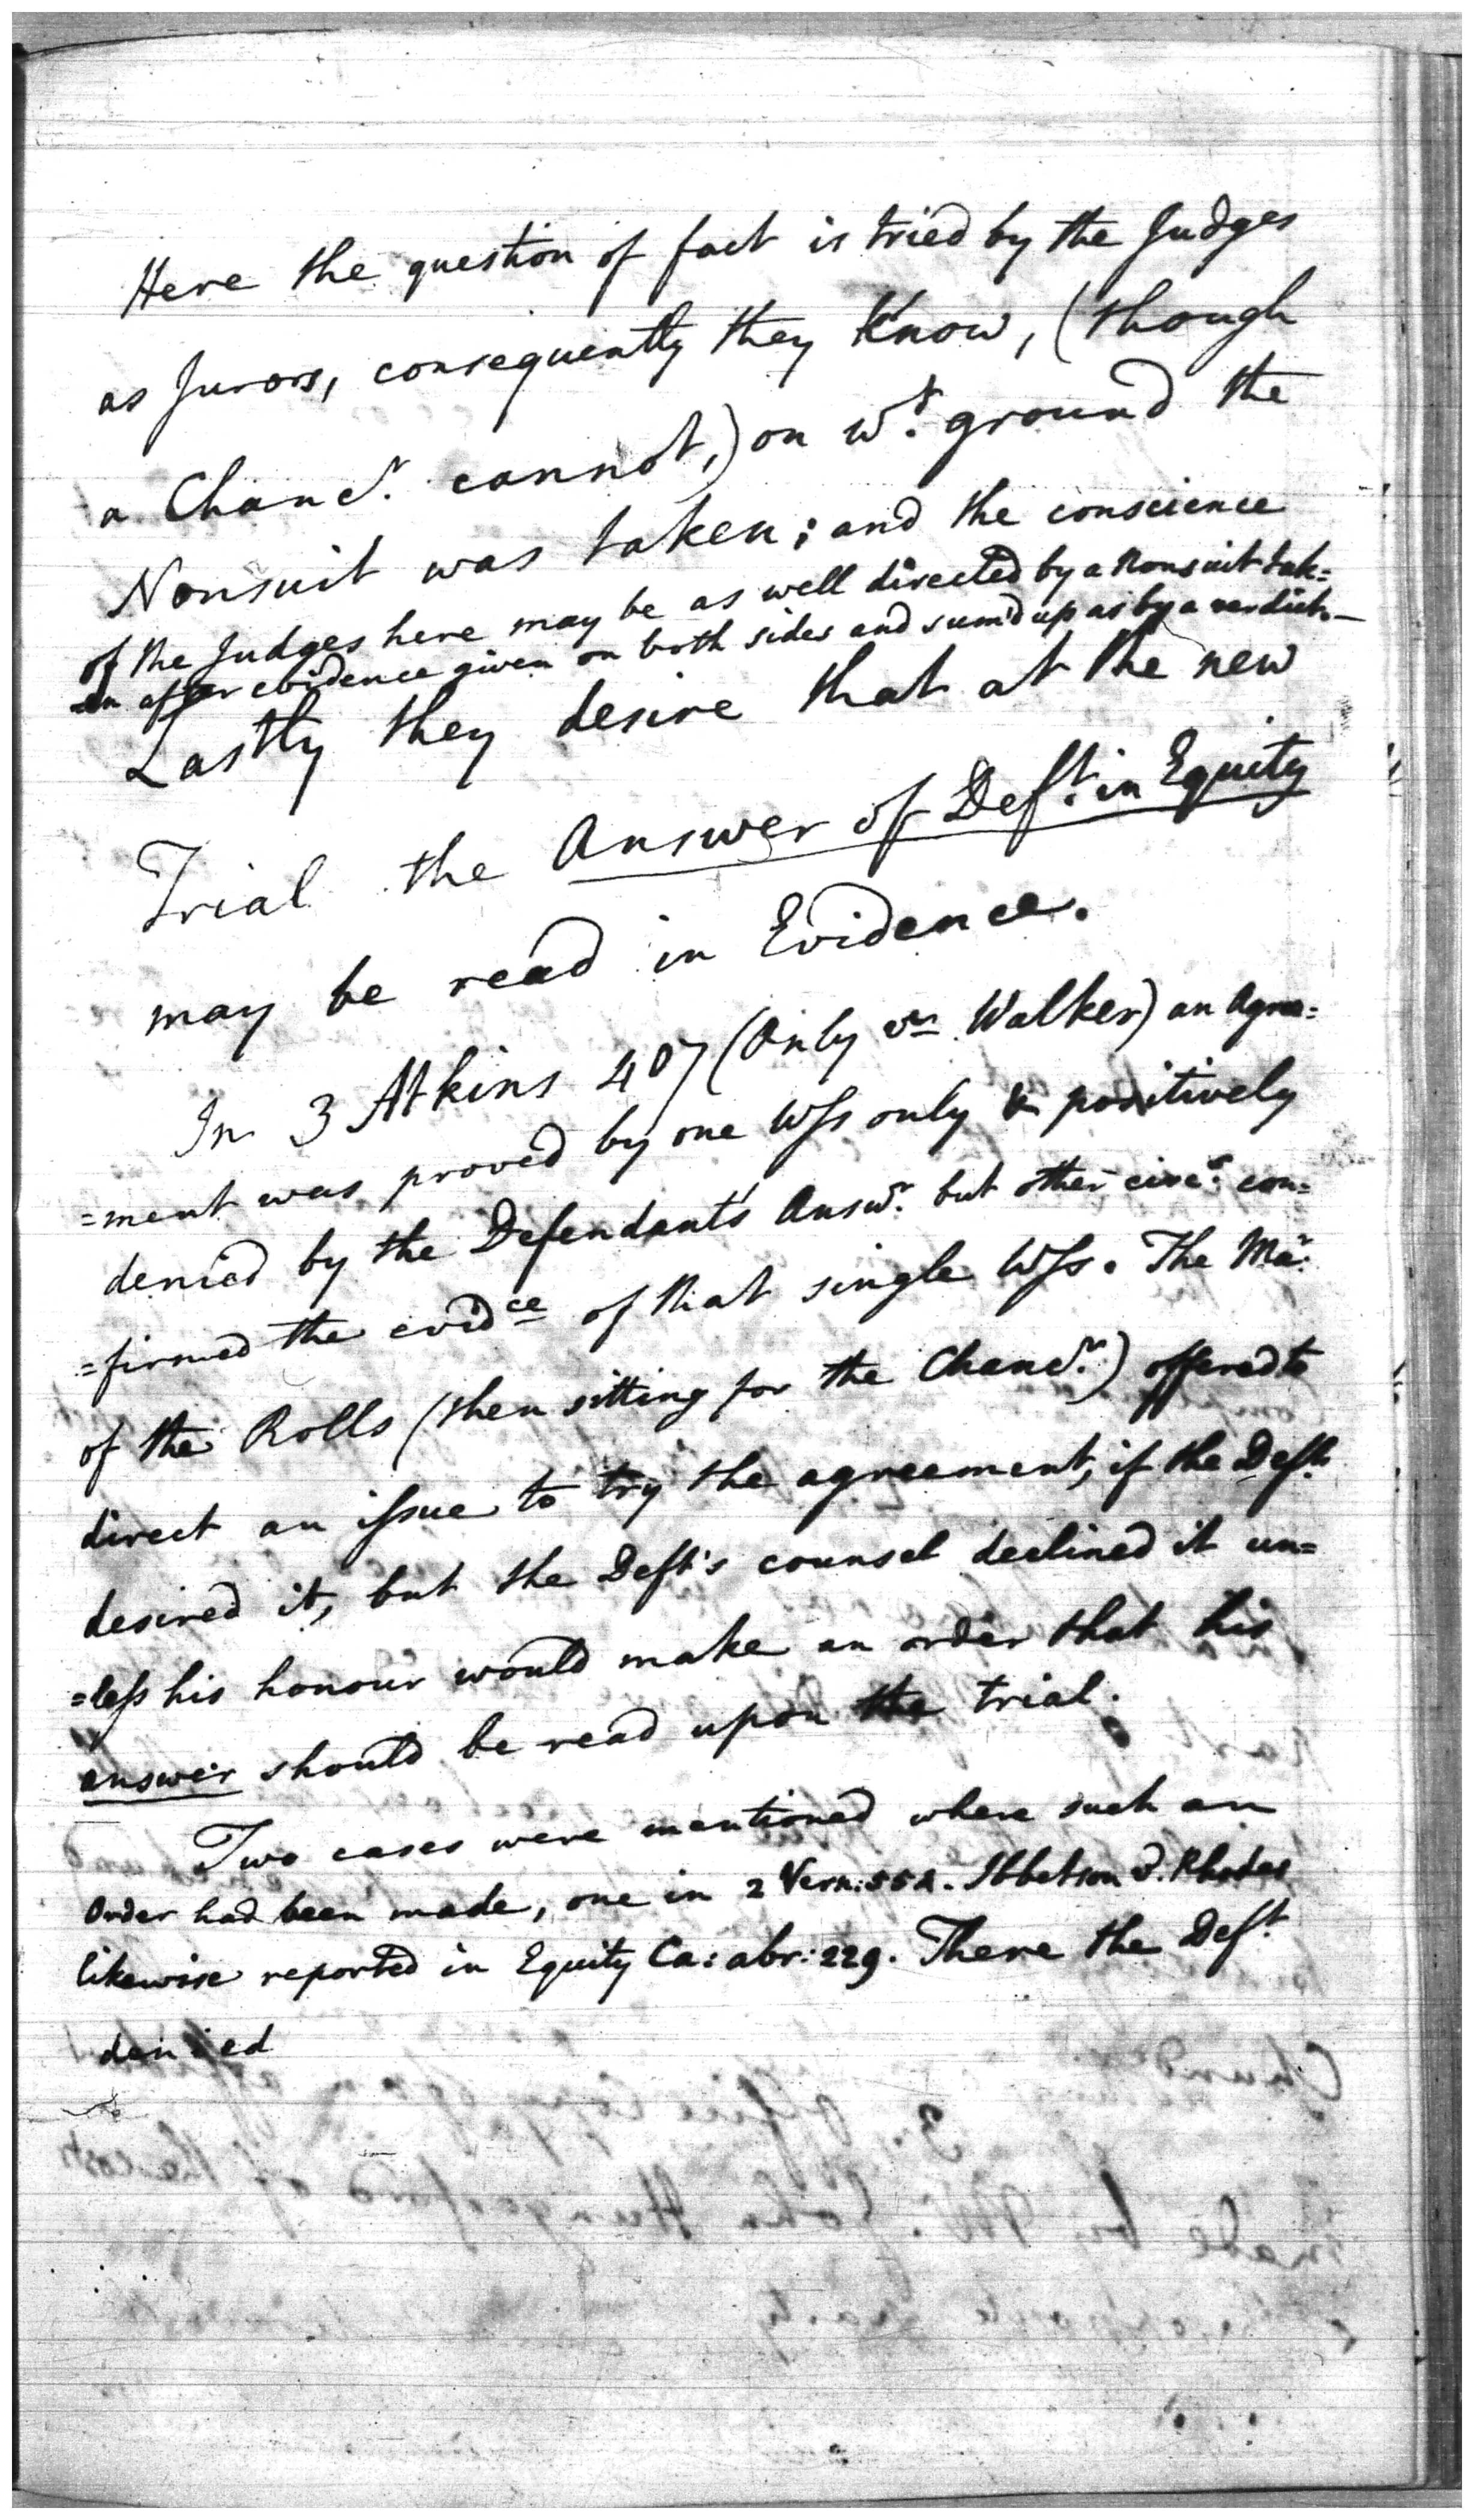 Here the question of fact is tried by the Judges
as Jurors, consequently they know, (though
a Chancr. cannot,) on wt. ground the
Nonsuit was taken; and the conscience
of the Judges here may be as well directed by a Nonsuit tak=
en after evidence given on both sides and sum'd up as by a verdict.—
Lastly they desire that at the new
Trial the Answer of Deft. in Equity
may be read in Evidence.
In 3 Atkins 407 (Only vs Walker) an Agree=
=ment was proved by one Wss only & positively
denied by the Defendant's Answr. but other circs. con=
=firmed the evidce of that single Wss. The Mar.
of the Rolls (then sitting for the Chancr.) offered to
direct an issue to try the agreement, if the Deft.
desired it, but the Deft's counsel declined it un=
=less his honour would make an order that his
answer should be read upon the trial.
Two cases were mentioned where such an
Order had been made, one in 2 Vern: 554. Ibbetson v. Rhodes
likewise reported in Equity Ca: abr: 229. There the Deft.
denied